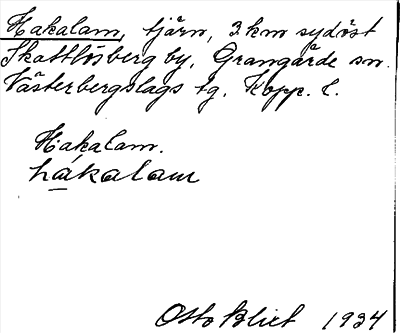 Hakalam, tjärn, 3 km sydöst
Skattlösberg by, Grangärde sn.
Västerbergslags tg. Kopp. l.
Hakalam.
hákalam
Otto Blixt 1934